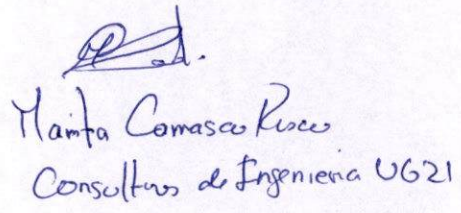 Marita Carrasco Rosco
Consultores de Ingeniería UG21